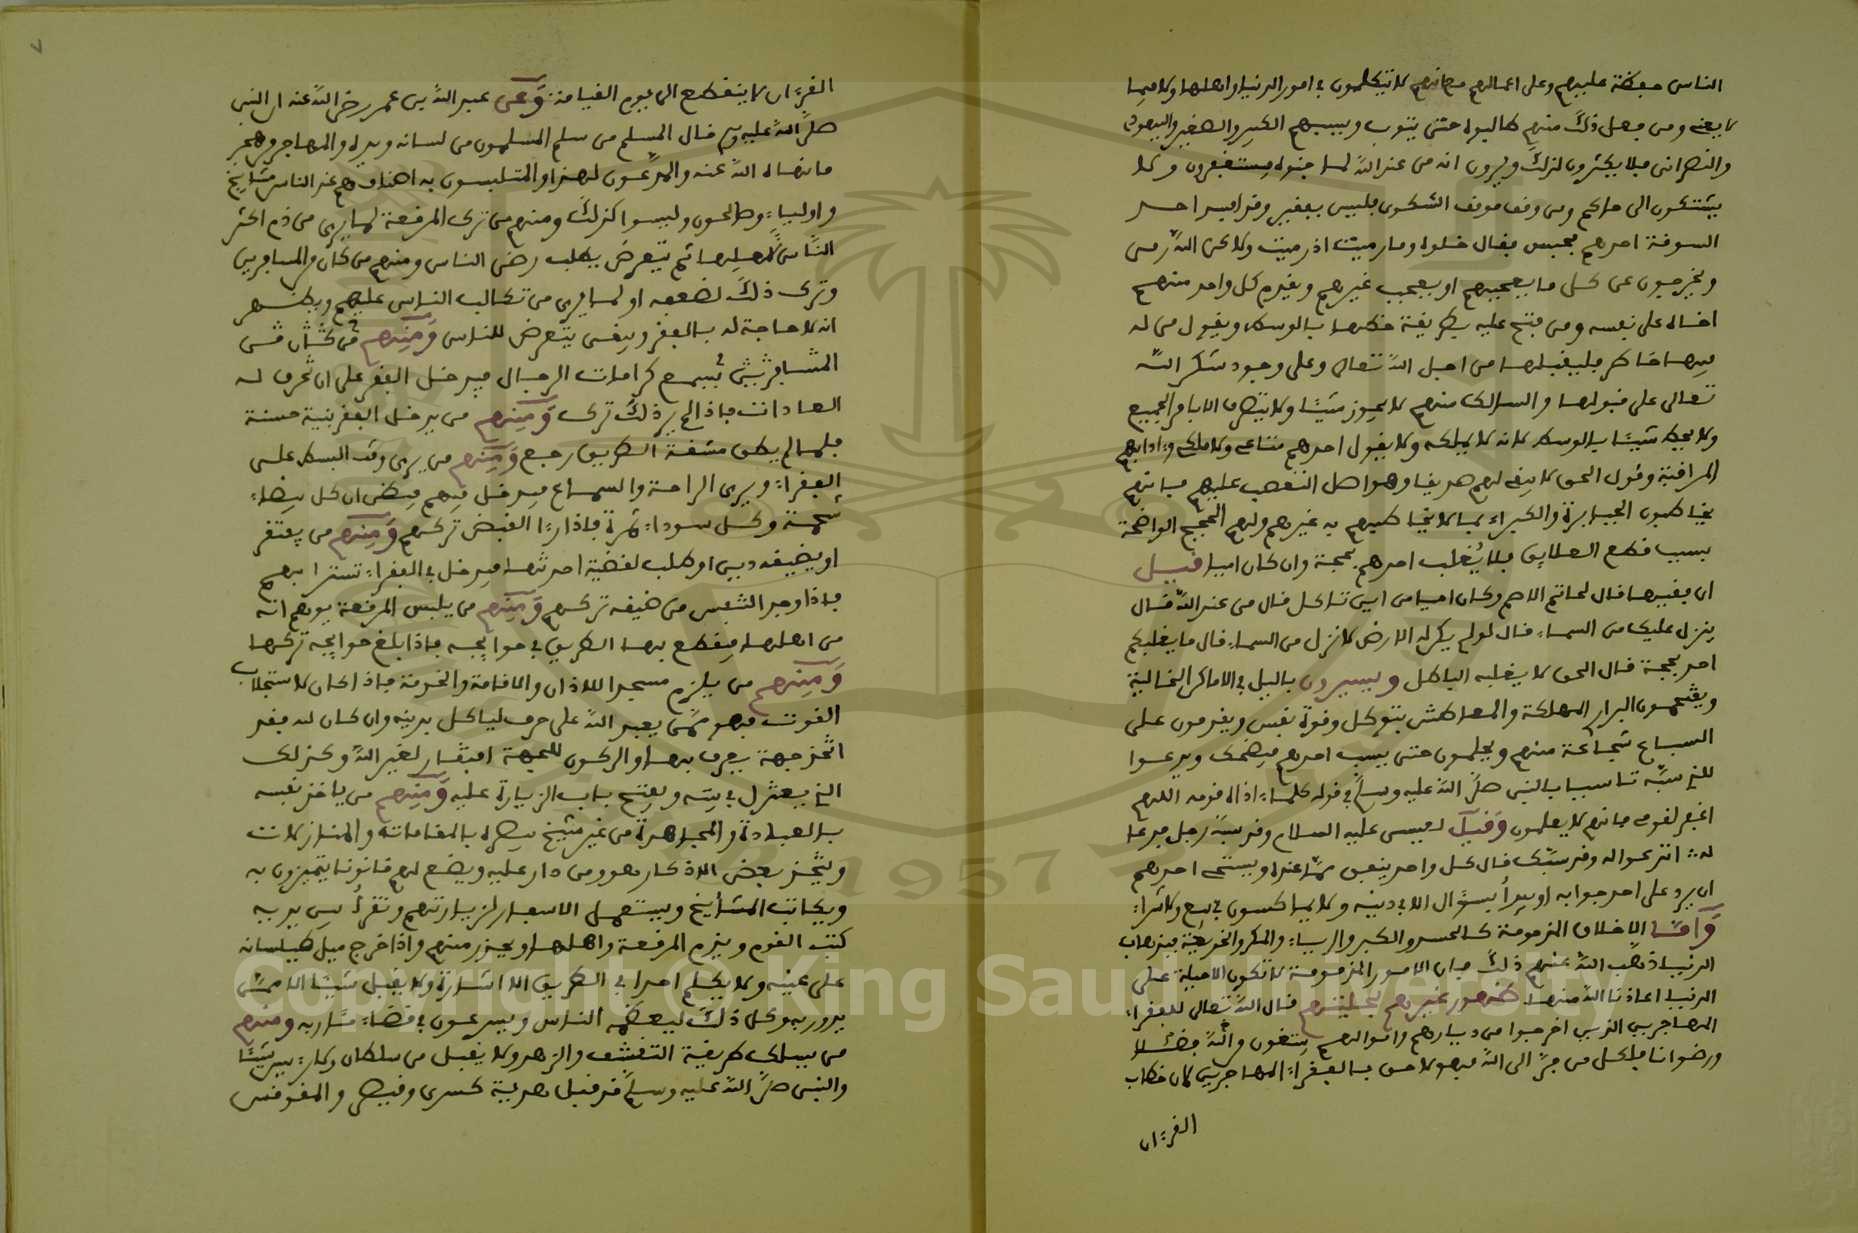 الناس معكفة عليهم وعلى اعمالهم فانهم لا يتكلمون في امور الدنيا واهلها ولا فيما
لا يعنى ومن فعل ذلك منهم كالبوله حتى يتوب ويسبهم الكبير والصغير واليهودي
والنصراني فلا يكترثون لذلك ويرون انه من عند الله لما جنوه فيستغفرون ولا
يشتكون الى حاكم ومن وقف موقف الشكوى فليس بفقير وقد امر احد
السوقة احدهم بحبس فقال خلوه وما رميت اذ رميت ولاكن الله رمى
ويخرجون عن كل ما يعجبهم او يعجب غيرهم ويقدم كل واحد منهم
اخاه على نفسه ومن فتح عليه بطريقة خطبها بالوسط ويقول من له
فيها خاطر فليقبلها من اجل الله تعالى وعلى وجود شكر الله
تعالى على قبولها والسالك منهم لا يحوز شيئا ولا يتصرف الا بامر الجميع
ولا يعطى شيئا بالوسط لانه لا يملكه ولا يقول احدهم متاعي ولا ملكي وادابهم
المراقبة وقول الحق لا يبقى لهم صديقا وهو اصل التعصب عليهم فانهم
يخاطبون الجبابرة والكبراء بما لا يخاطبهم به غيرهم ولهم الحجج الواضحة
بسبب قطع العلايق فلا يغلب احدهم بحجة وان كان اميا قيل
ان فقيها قال لحاتم الاصم وكان اميا من اين تاكل قال من عند الله قال
ينزل عليك من السماء قال لو لم يكن له الارض لانزل من السماء قال ما يغلبكم
احد بحجة قال الحق لا يغلبه الباطل ويسيرون بالليل في الاماكن الخالية
ويقتحمون البرار المهلكة والمعاطش بتوكل وقوة نفس ويقدمون على
السباع شجاعة منهم ويحلمون حتى يسب احدهم فيضحك ويدعوا
للذي سبه تاسيا بالنبي صلى الله عليه وسلم في قوله كلما اذاه قومه اللهم
اغفر لقومي فانهم لا يعلمون وقيل لعيسى عليه السلام وقد سبه رجل فدعا
له اتدعوا له وقد سبك قال كل واحد ينفق مما عنده ويستحي احدهم
ان يرد على احد جوابه او يبدأ بسؤال الا في دينه ولا يماكسون في بيع ولا شراء
وامّا الاخلاق المذمومة كالحسد والكبر والرياء والمكر والخديعة فبذهاب
الدنيا ذهب الله عنهم ذلك فان الامور المذمومة لا تكون الا مبنية على
الدنيا اعاذنا الله منها فظهور غيرهم بحليتهم قال الله تعالى للفقراء
المهاجرين الذين اخرجوا من ديارهم واموالهم يبتغون من الله فضلا
ورضوانا فكل من فر الى الله فهو لاحق بالفقراء المهاجرين لان خطاب
القرءان
٧
القرءان لا ينقطع الى يوم القيامة وعن عبد الله بن عمر رضي الله عنه ان النبي
صلى الله عليه وسلم قال المسلم من سلم المسلمون من لسانه ويده والمهاجر من هجر
ما نهاه الله عنه والمدّعون لهذا والمتلبسون به اصناف هم عند الناس مشايخ
واولياء وصالحون وليسوا كذلك ومنهم من ترك المرقعة لما يرى من ذم اكثر
الناس لاهلها ثم يتعرض بطلب رضى الناس ومنهم من كان من المسافرين
وترك ذلك لضعفه او لما يرى من تكالب الناس عليهم ويظهر
انه لا حاجة له بالفقر وبنفس يتعرض للناس ومنهم
يسمع كرامات الرجال فيدخل الفقر على ان تخرق له
العادات فاذا لم ير ذلك ترك ومنهم من يدخل الفقر بنية حسنة
فلما لم يطق مشقة الطريق رجع ومنهم من يرى وقت البسط على
الفقراء ويرى الراحة والسماع فيدخل فيهم فيظن ان كل بيضاء
شحمة وكل سوداء تمرة فاذا راى القبض تركهم ومنهم من يفتقر
او يضيفه دين او طلب لقضية احدثها فيدخل في الفقراء تسترا بهم
فاذا وجد التنفس من ضيقه تركهم ومنهم من يلبس المرقعة يوهم انه
من اهلها فيقطع بها الطريق في حوايجه فاذا بلغ حوايجه تركها
ومنهم من يلزم مسجدا للاذان والاقامة والخدمة فاذا كان لاستجلاب
القوت فهو ممن يعبد الله على حرف لياكل بدينه وان كان له فقد
اتخذ جهة يعرف بها والركون للجهة افتقار لغير الله وكذلك
الذي يعتزل في بيته ويفتح باب الزيارة عليه ومنهم من ياخذ نفسه
بالعبادة والمجاهدة من غير شيخ بصره بالمقامات والمنازلات
ويتخذ بعض الاذكار هو ومن دار عليه ويضع لهم قانونا يتميزون به
ويكاتب المشايخ ويستعمل الاسفار لزيارتهم وتقرأ بين يديه
كتب القوم ويذم المرقعة واهلها ويحذر منهم واذا خرج ميل طيلسانه
على عينيه ولا يكلم احدا في الطريق الا اشارة ولا يقبل شيئا الا ممن
يدور به وكل ذلك ليعظمه الناس ويسرعون في قضاء مئاربه ومنهم
من يسلك طريقة التقشف والزهد ولا يقبل من سلطان ولا امير شيئا
والنبي صلى الله عليه وسلم قد قبل هدية كسرى وقيصر والمقوقس
Copyright © King Saud University
1957